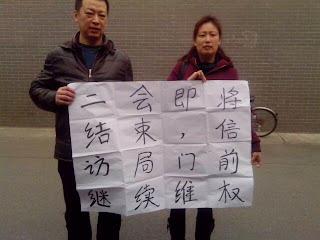 二会即将
结束,信
访局门前
继续维权